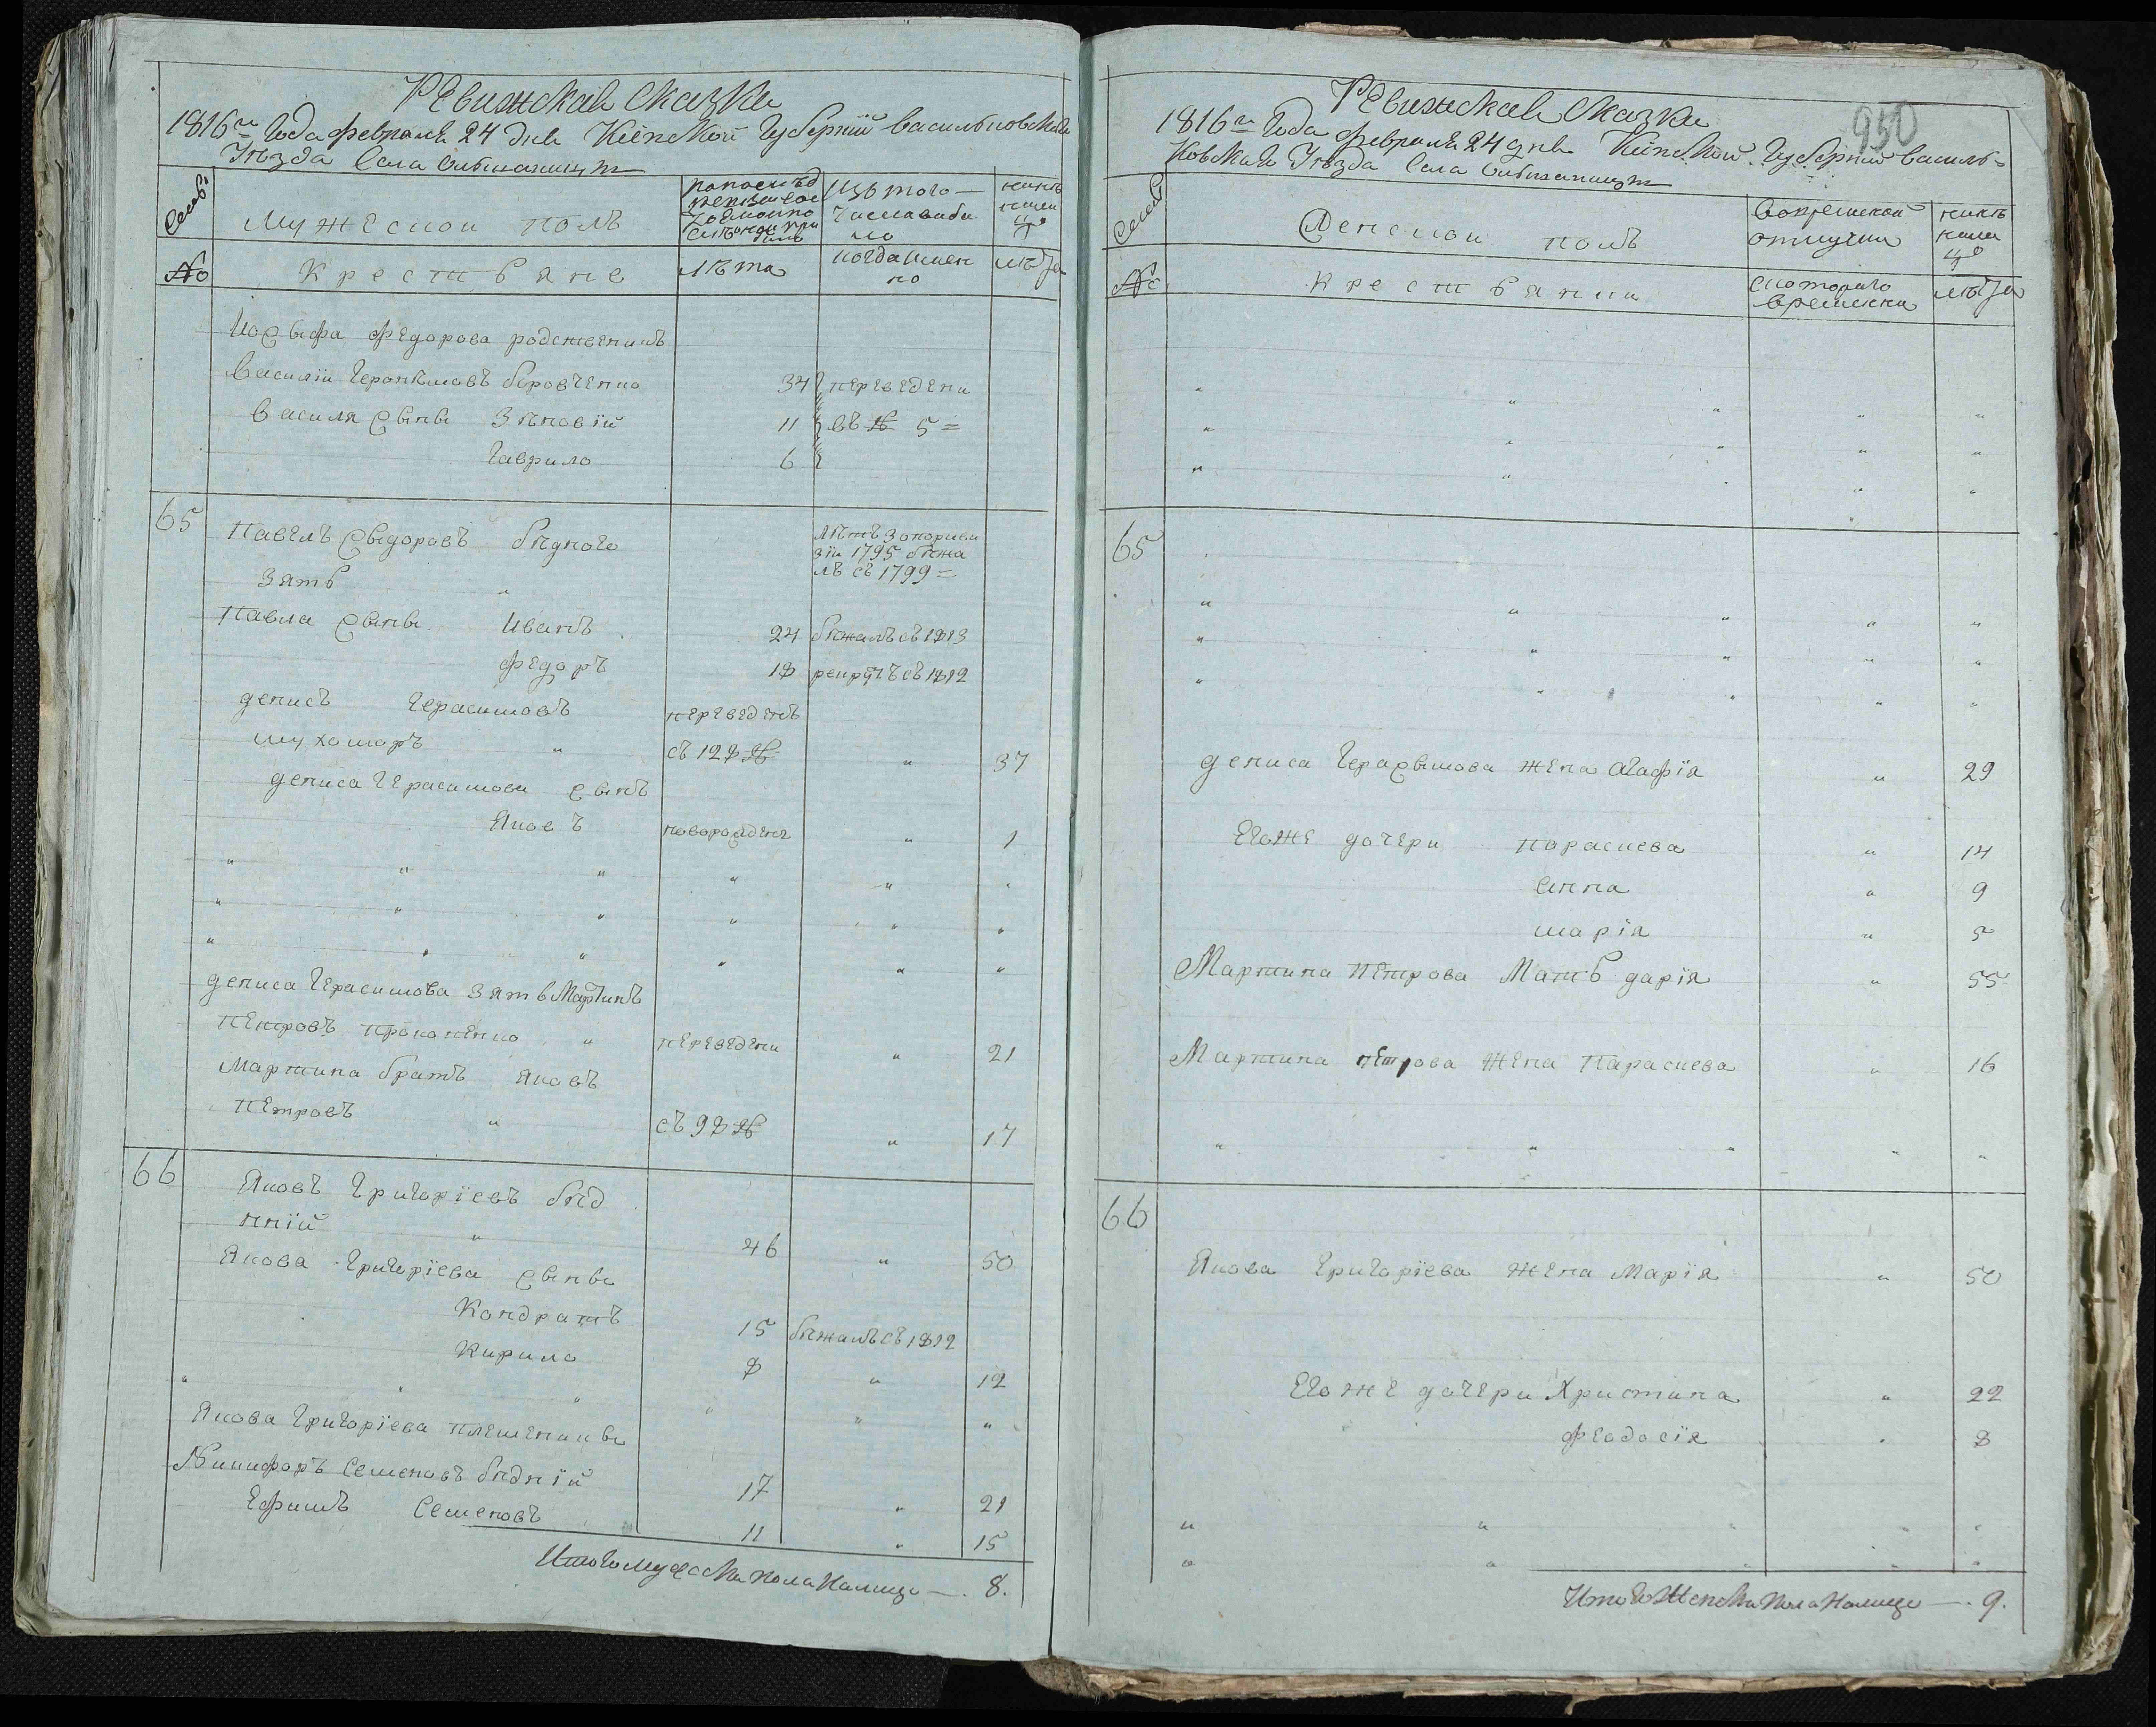 Ревижская сказка
1816го Года февраля 24 дня Кіевской Губерніи васильковскаго
Уѣзда Села
семьи
Мужескои полъ
Изъ того
числа выбы
ло
нынѣ
налиц
о
№
Крестьяне
лѣта
когда имен
но
лѣта
Иосыфа Федорова родственикъ
василіи Герасимовъ боровченко
34
переведени
василя сыны Зѣновій
11
въ № 5 =
Гаврило
6
65
Павелъ Сыдоровъ бѣдного
лѣтъ по ревы
зіи 1795 бѣжа
лъ съ 1799 =
зять "
Павла сыны Иванъ
24
бѣжалъ съ 1813
Федоръ
18
рекрутъ съ 1812
денисъ Герасимовъ
переведенъ
мухоморъ "
съ 128 №
"
37
дениса Герасимова сынъ
Яковъ
новорожденъ
"
1
дениса Герасимова зять Мартинъ
Петровъ прокопенко "
переведени
"
21
Мартина братъ Яковъ
Петровъ "
съ 98 №
"
17
66
Яковъ Григоріевъ бѣд
нній "
46
"
50
Якова Григоріева сыны
Кондратъ
15
бѣжалъ съ 1812
Кирило
8
"
12
Якова Григоріева племенники
Никифоръ Семеновъ бѣдній
17
"
21
Ефимъ Семеновъ
11
"
15
Итого мужеска пола налицо — 8.
950
Ревижская сказка
1816го Года февраля 24 дня Кіевской Губерніи василь-
ковскаго Уѣзда Села
семьи
Женскои полъ
во временной
отлучки
нынѣ
налиц
о
№
Крестьянки
с котораго
времени
лѣта
65
дениса Герасымова жена агафія
"
29
Егоже дочери параскева
"
14
анна
"
9
марія
"
5
Мартина Петрова Мать дарія
"
55
Мартина петрова жена Параскева
"
16
66
Якова Григоріева жена Марія
"
50
Егоже дочери Христина
"
22
Феодосія
"
8
Итого Женска пола налицо — 9.